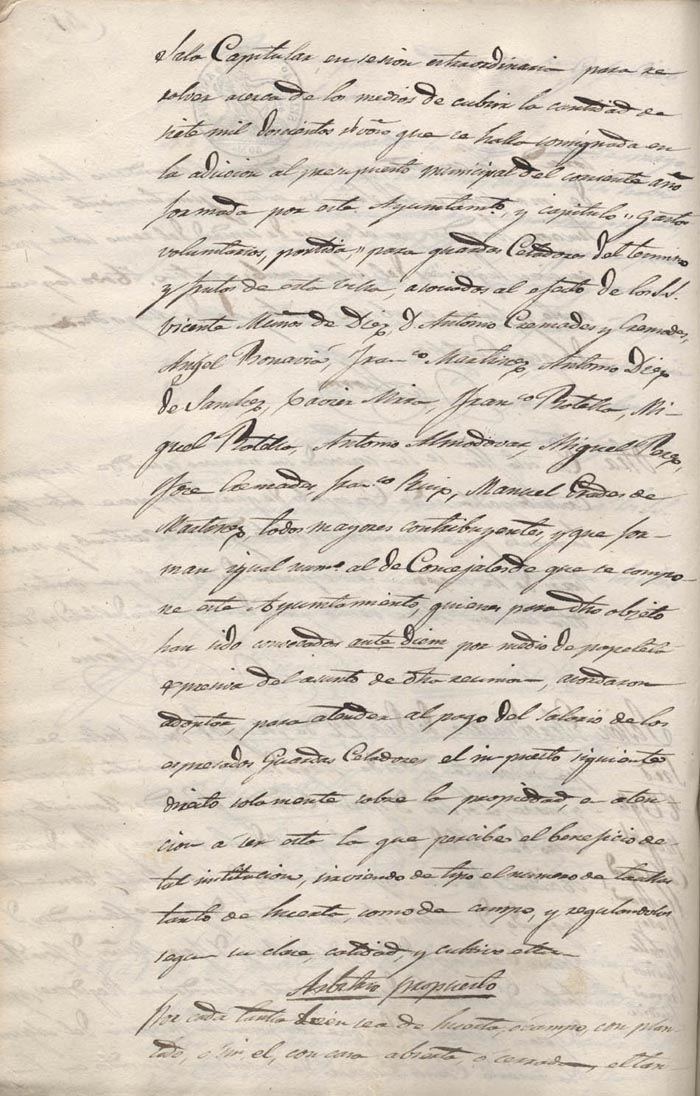 Sala Capitular, en sesion extraordinaria para re
solver acerca de los medios de cubrir la cantidad de
siete mil doscientos r.s von que se halla consignada en
la adicion al presupuesto municipal del corriente año
formada por este Ayuntam.to, y capitulo "Gastos
voluntarios, partida" para guardas Celadores del termino
y frutos de esta villa, asociados al efecto de los S.S.
Vicente Muños de Diez, D. Antonio Cremades y Cremades,
Angel Bonavia, Fran.co Martinez, Antonio Diez
de Sanchez, Xavier Mira, Fran.co Botella, Mi-
guel Botella, Antonio Almodovar, Miguel Perez,
Jose Cremades, Fran.co Ruiz, Manuel Prades de
Martinez, todos mayores contribuyentes, y que for-
man igual num.o al de Concejales de que se compo-
ne este Ayuntamiento, quienes para dho objeto
han sido convocados ante diem por medio de papeleta
espresiva del asunto de dha reunion, acordaron
adoptar, para atender al pago del salario de los
espresados Guardas Celadores el impuesto siguiente
directo solamente sobre la propiedad, en aten-
cion a ser esta la que percibe el beneficio de
tal institucion, sirviendo de tipo el numero de
tanto de huerta, como de campo, y regulandolos
segun su clase, calidad, y cultivo
Arbitrio propuesto
Por cada tanta sea de huerta, o campo, con plan-
tado, o sin el, con casa abierta, o cerrada, el tan